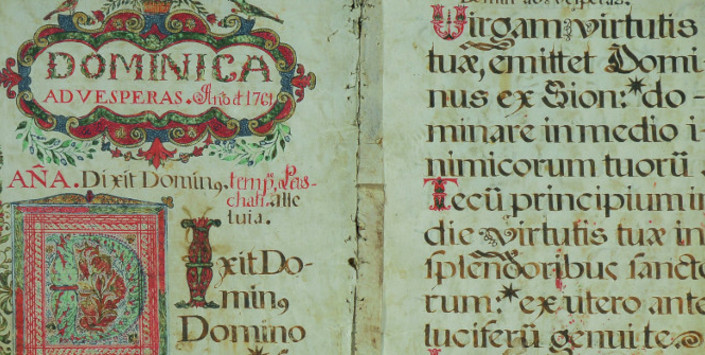 DOMINICA
AD VESPERAS. Año đ 1761
AÑA. Dixit Domin9 temp. Pas-
chali. alle
luia.
D Ixit Do-
min9
Domino
Domin. ad vesperas.
Uirgam virtutis
tuæ, emittet Domi-
nus ex Sion: * do-
minare in medio i-
nimicorum tuorũ.
Tecũ principium in
die virtutis tuæ in
ſplendoribus ſancto
rum: * ex utero ante
luciferũ genui te.